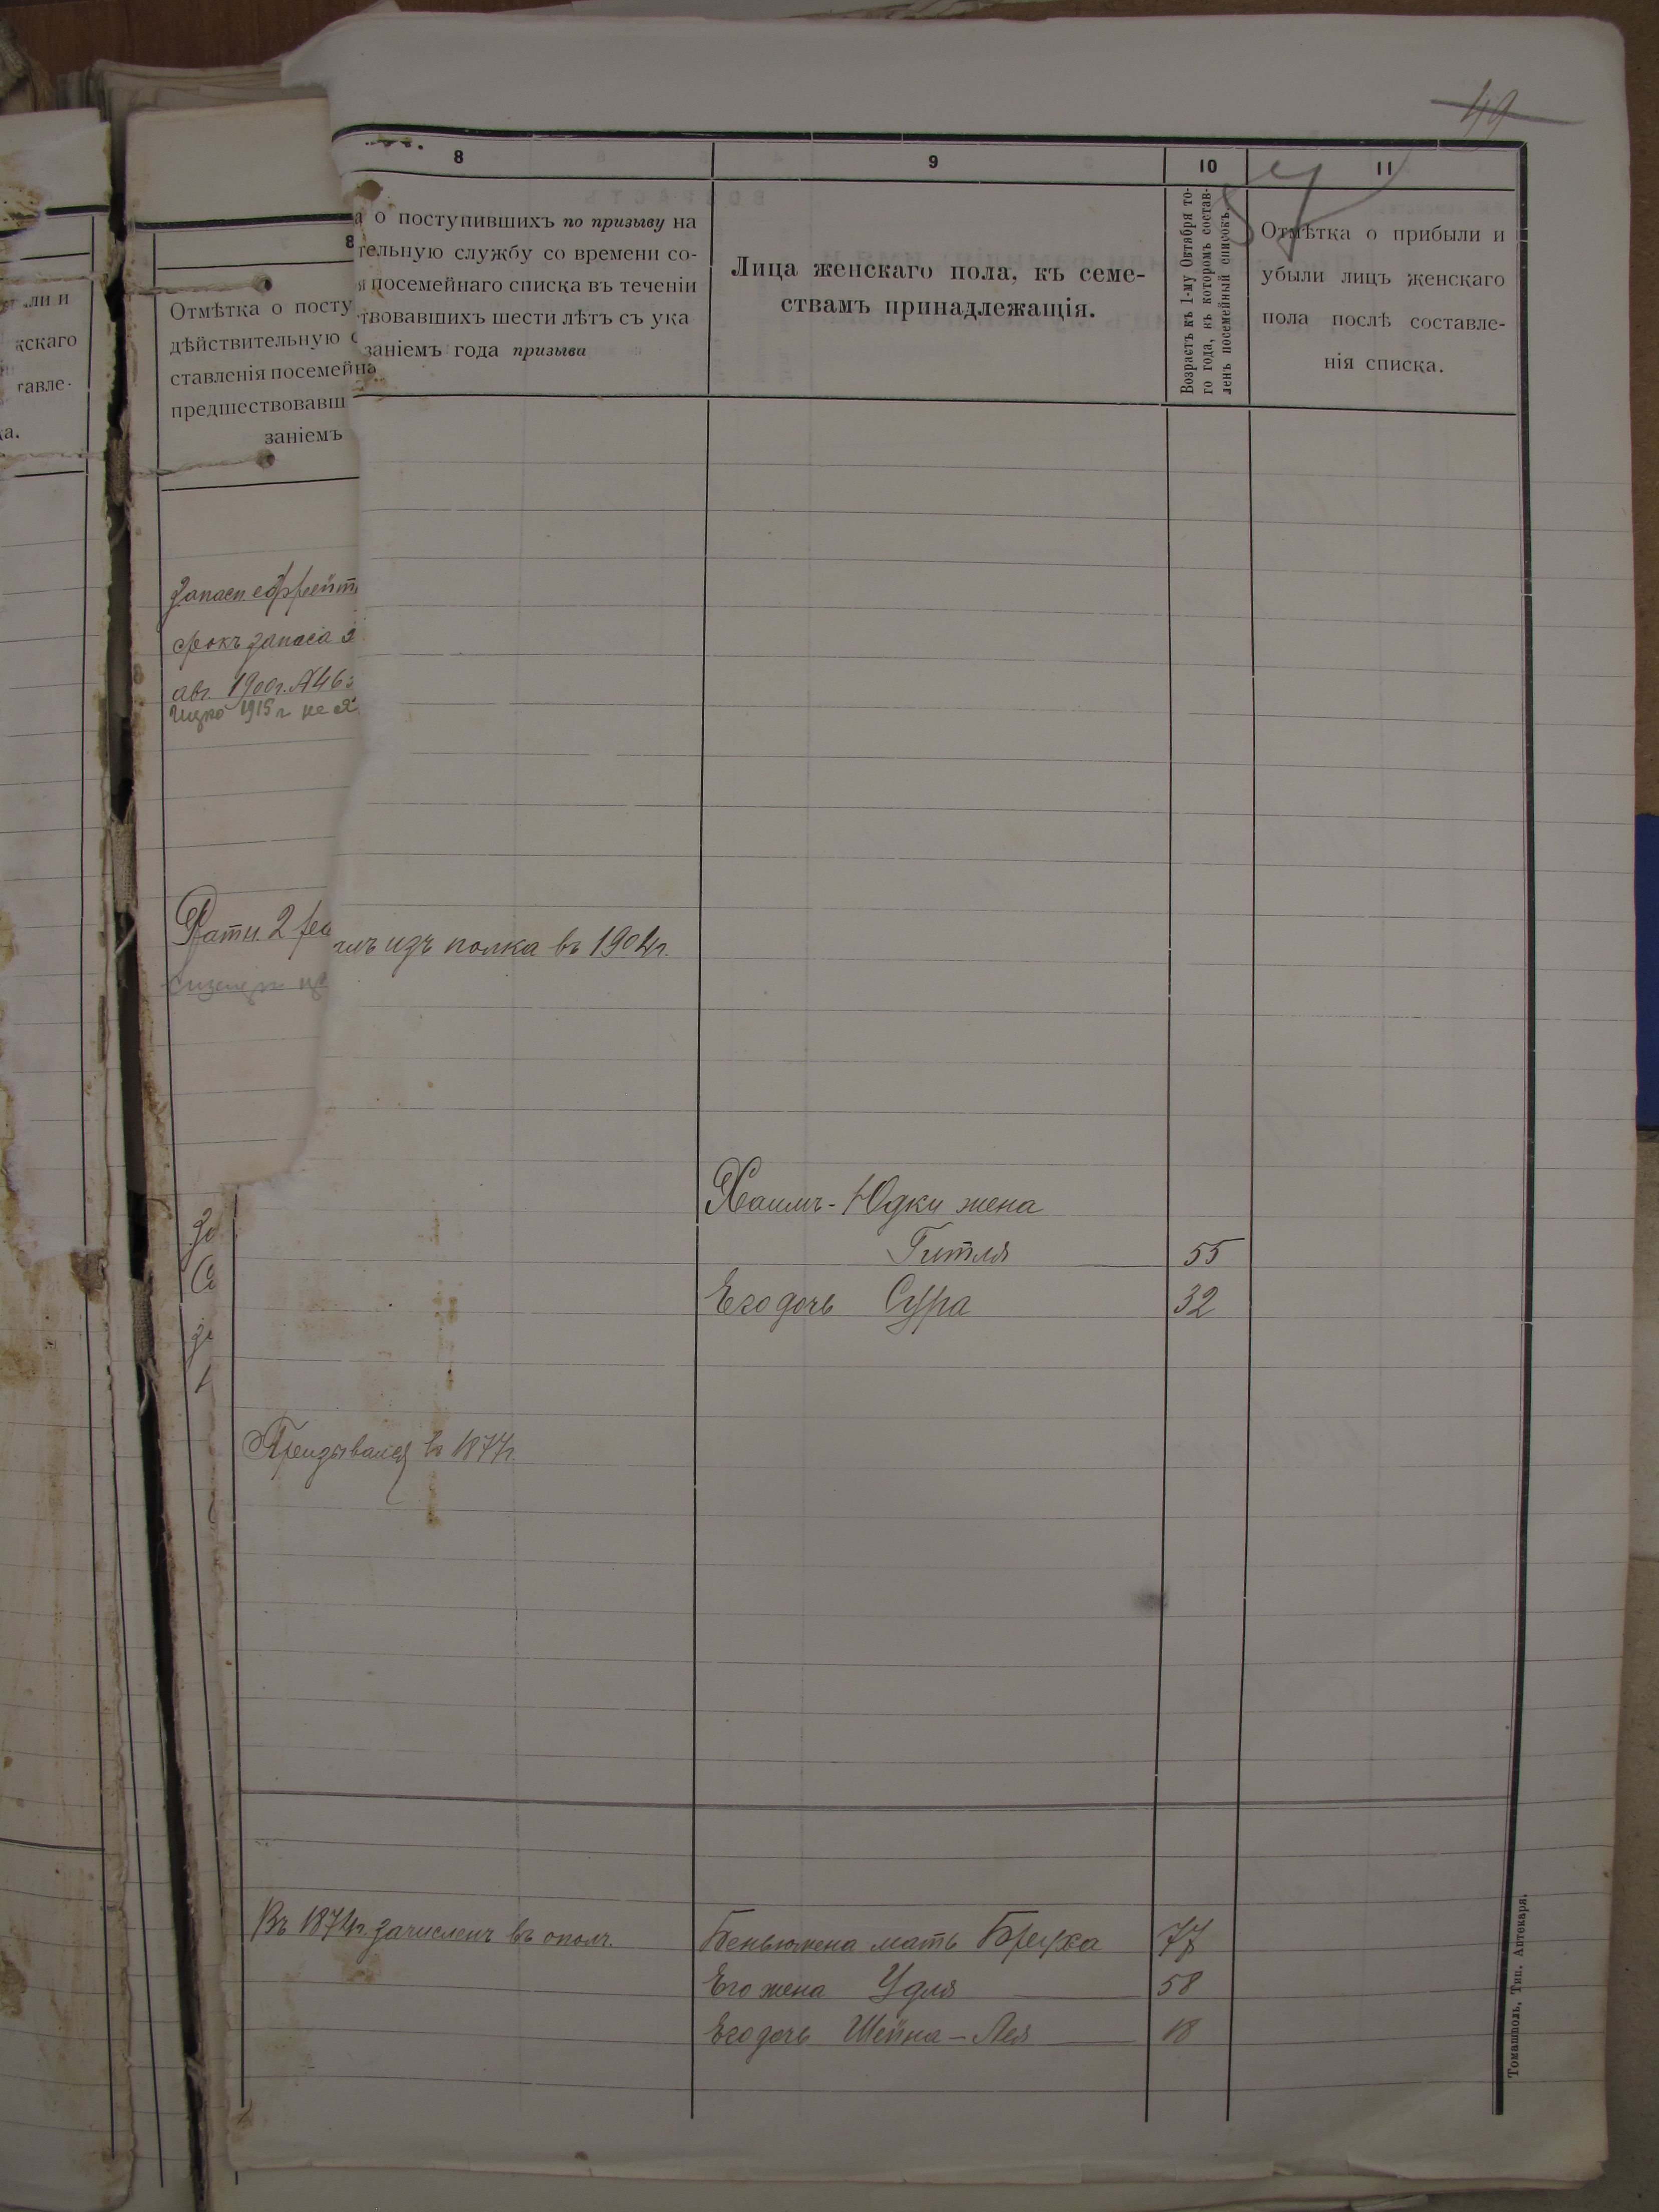 49
57
8
9
10
11
а о поступившихъ по призыву на
тельную службу со времени со-
я посемейнаго списка въ теченіи
твовавшихъ шести лѣтъ съ ука
заніемъ года призыва
Лица женскаго пола, къ семе-
ствамъ принадлежащія.
Возрастъ къ 1-му Октября то-
го года, въ которомъ состав-
ленъ посемейный списокъ.
Отмѣтка о прибыли и
убыли лицъ женскаго
пола послѣ составле-
нія списка.
8
Отмѣтка о посту
дѣйствительную с
ставленія посемейна
предшествовавш
заніемъ
ли и
кскаго
тавле-
ка.
Запасн. ефрейт
срокъ запаса
авг. 1900г. №46
1915 г. не я
Ратн. 2 раз
изъ полка въ 1904г.
Хаимъ-Юдки жена
Гитля 55
Его дочь Сура 32
Призывался въ 1877г.
Въ 1874г. зачисленъ въ ополч.
Беньюмена мать Бруха 77
Его жена Удля 58
Его дочь Шейна-Лея 18
Томашполь, Тип. Аптекаря.